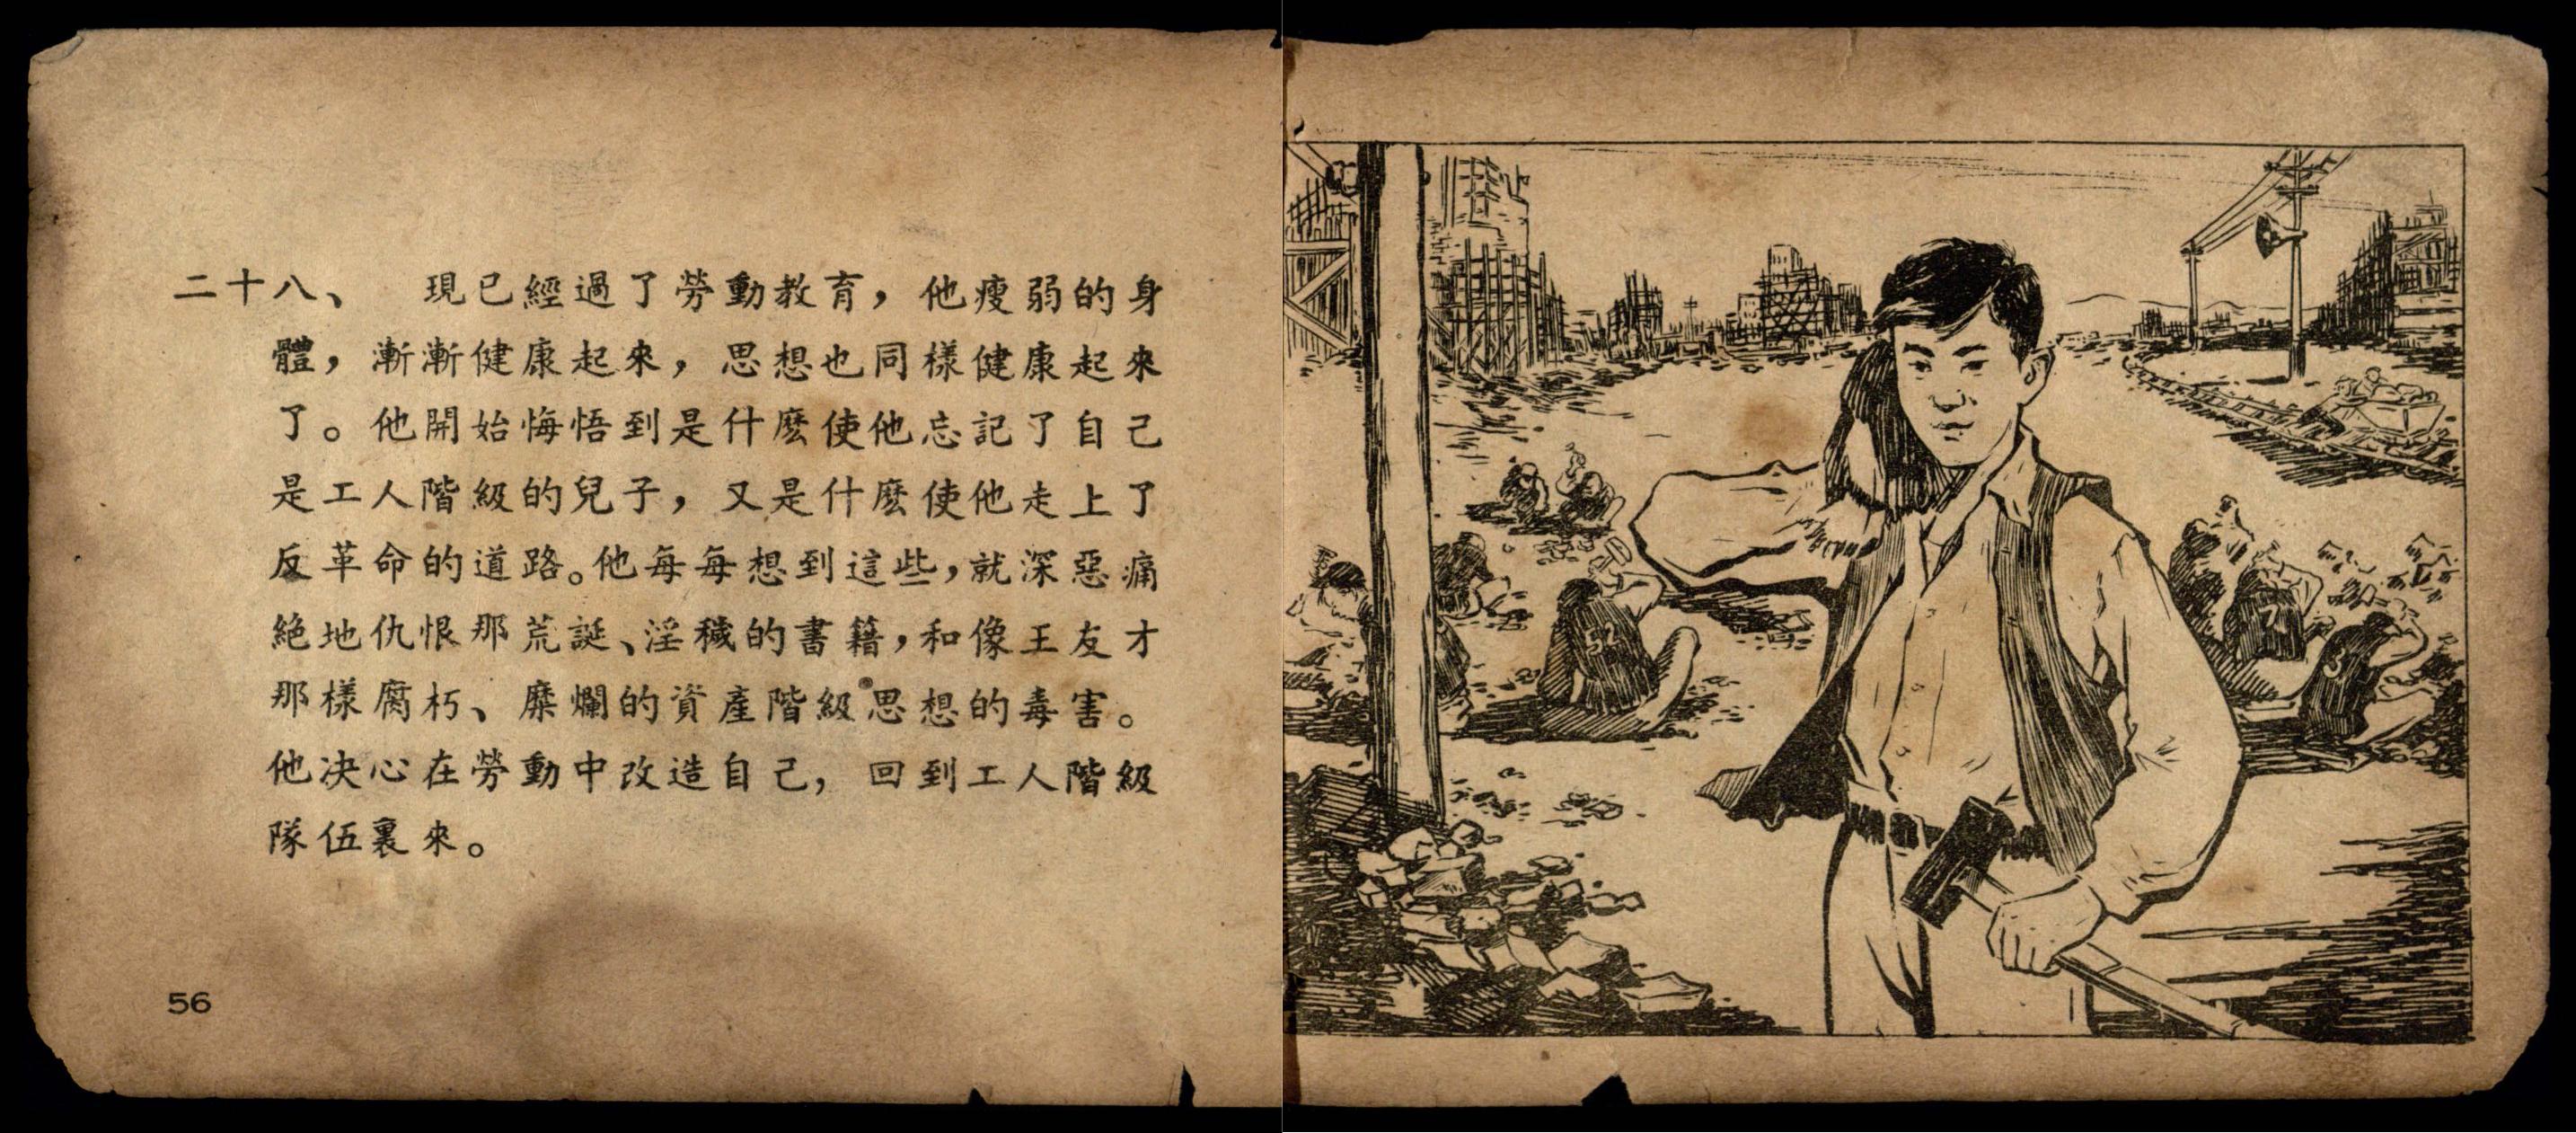 二十八、　現已經過了勞動教育，他瘦弱的身
體，漸漸健康起來，思想也同樣健康起來
了。他開始悔悟到是什麽使他忘記了自己
是工人階級的兒子，又是什麽使他走上了
反革命的道路。他每每想到這些，就深惡痛
絶地仇恨那荒誕、淫穢的書籍，和像王友才
那樣腐朽、糜爛的資產階級思想的毒害。
他決心在勞動中改造自己，回到工人階級
隊伍裏來。
56
52
7
5